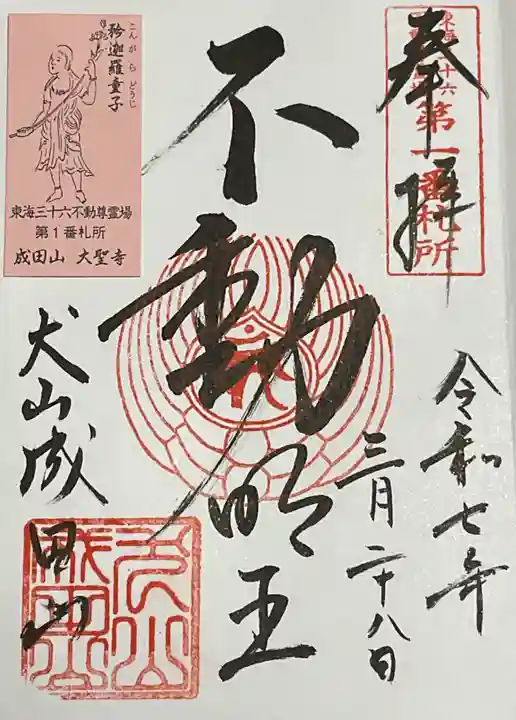 奉拝
東海三十六
第一番札所
令和七年
三月二十八日
不動明王
犬山成田山
こんがらどうじ
矜迦羅童子
東海三十六不動尊霊場
第1番札所
成田山 大聖寺